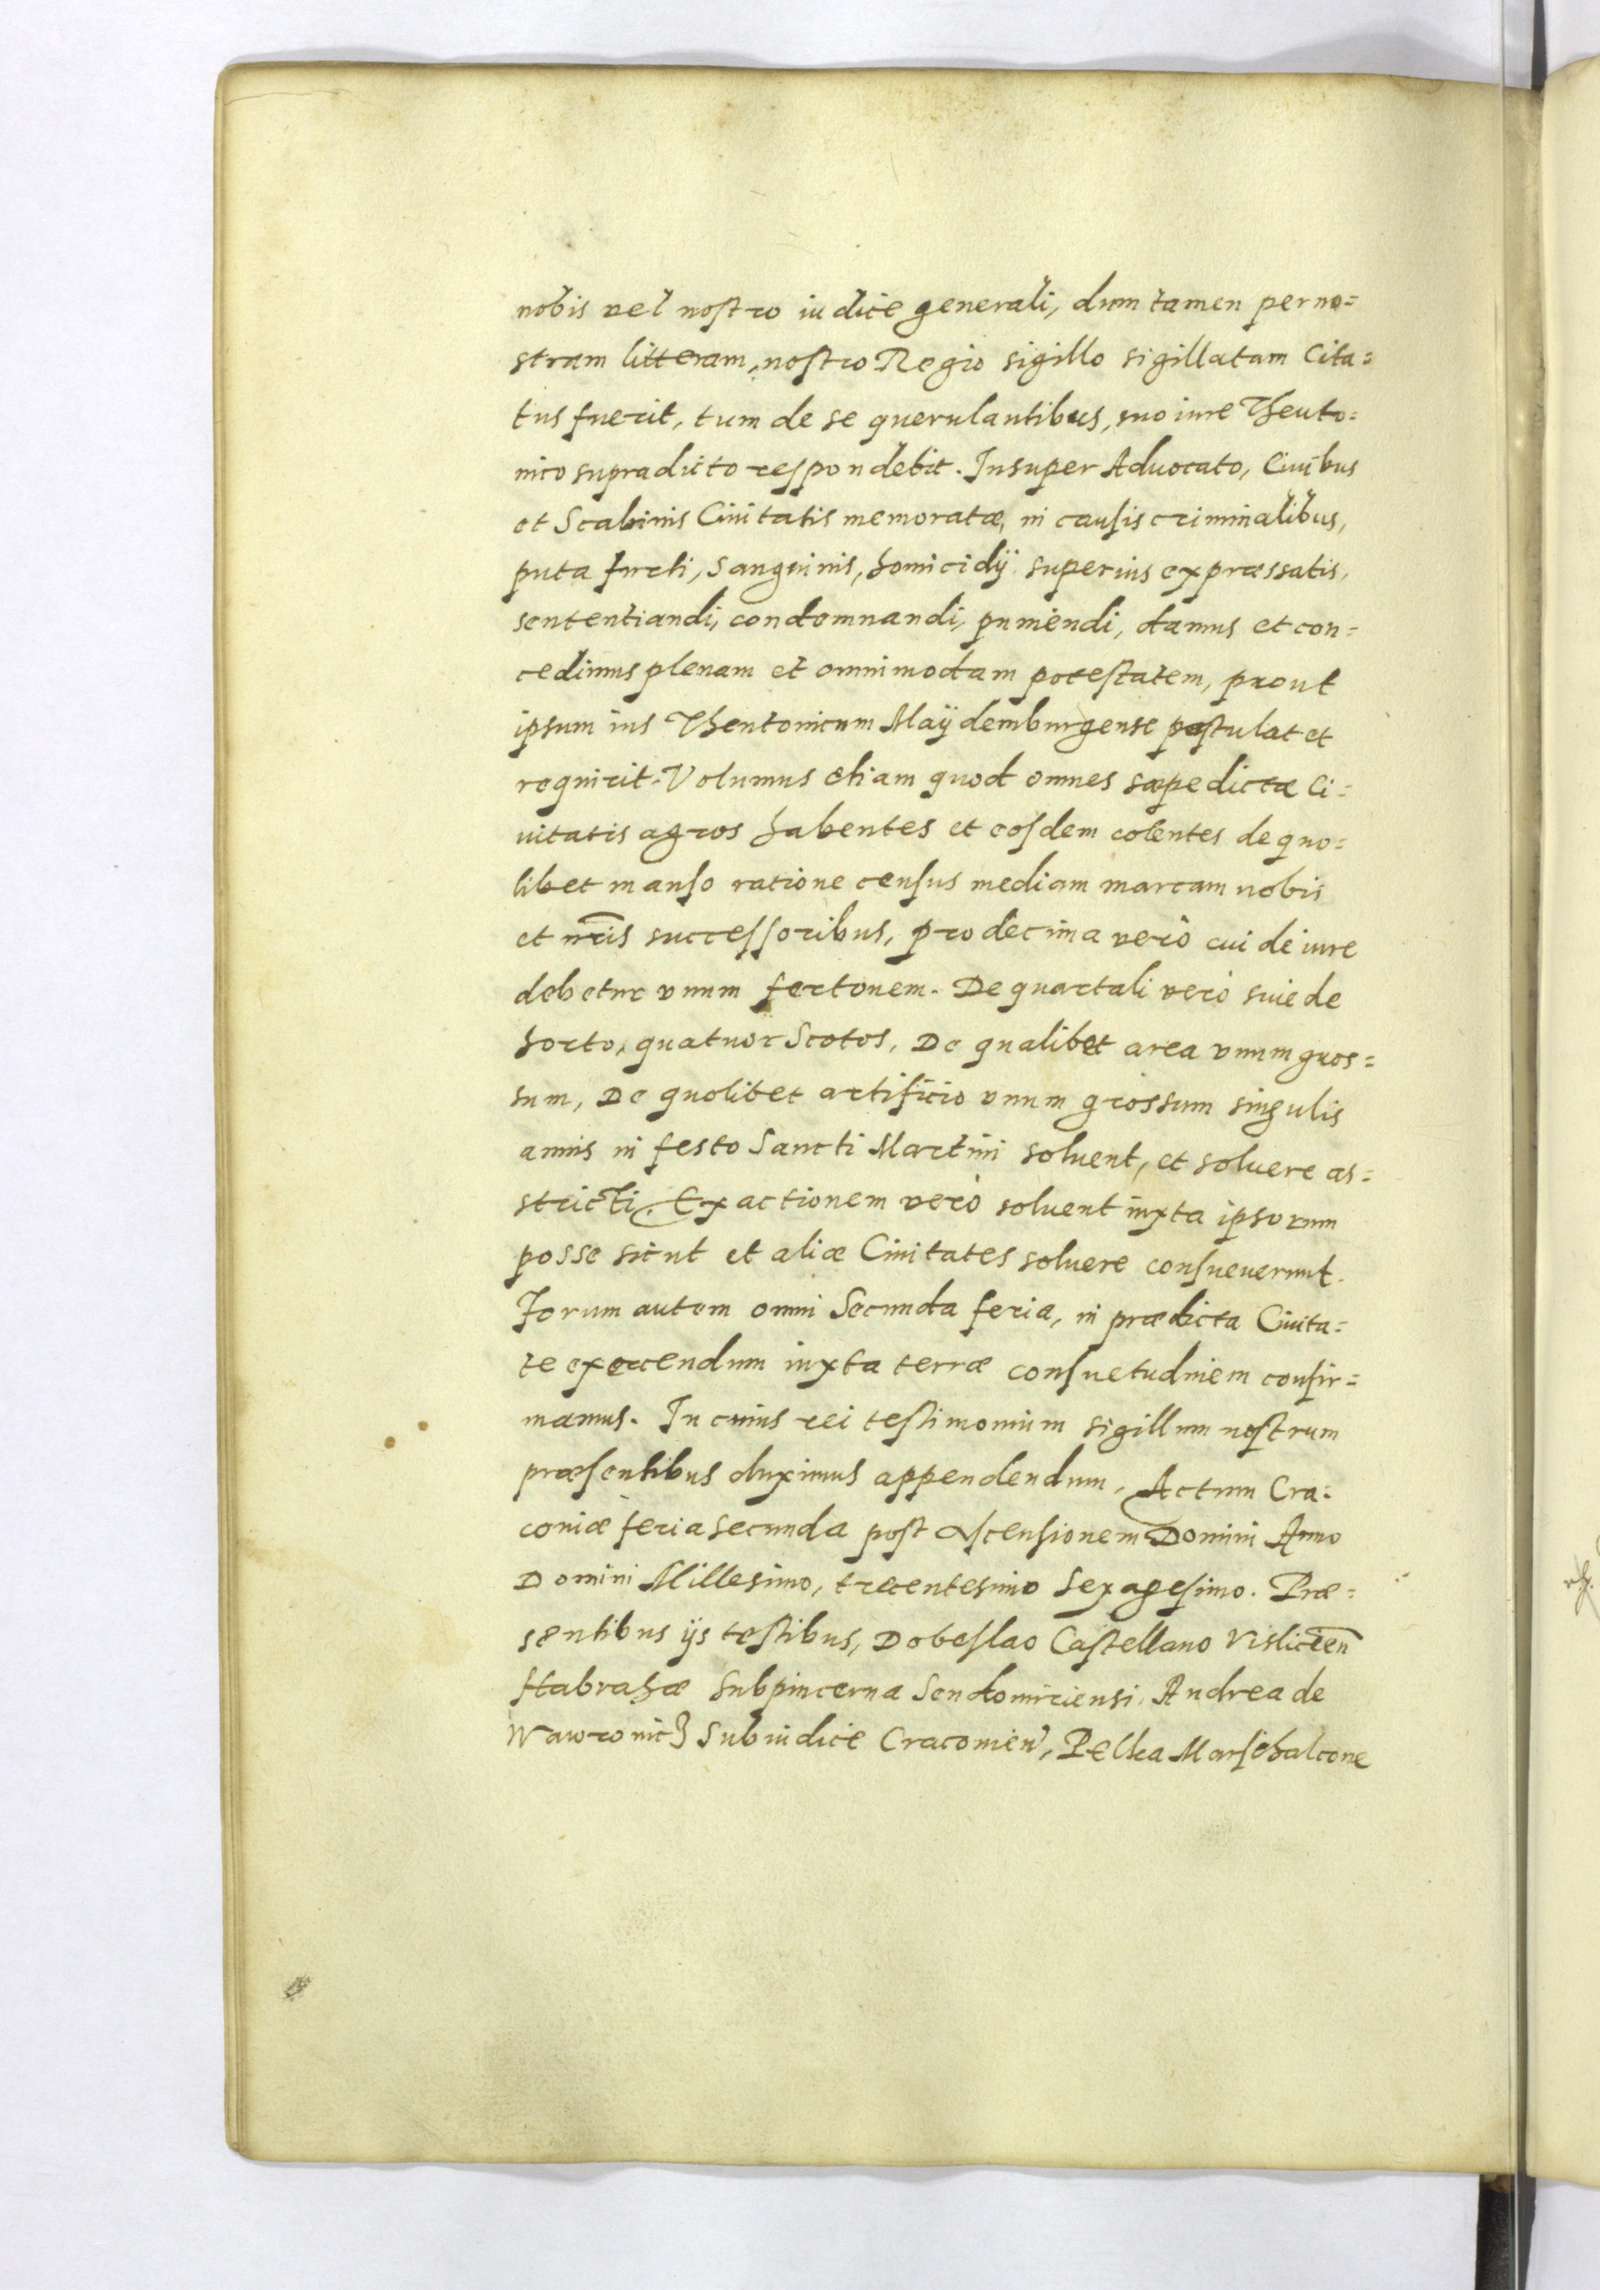 nobis vel nostro iudice generali, dum tamen per no=
stram litteram, nostro Regio sigillo sigillatam Cita=
tus fuerit, tum de se querulantibus, suo iure Theuto=
nico supradicto respondebit. Insuper Aduocato, Ciuibus
et Scabinis Ciuitatis memoratæ, in causis criminalibus,
puta furti, Sanguinis, homicidÿ superius expræssatis,
sententiandi, condemnandi, puniendi, damus et con=
cedimus plenam et omnimodam potestatem, prout
ipsum ius Theutonicum Maÿdemburgense postulat et
requirit. Volumus etiam quod omnes sæpedictæ Ci=
uitatis agros habentes et eosdem colentes de quo=
libet manso ratione census mediam marcam nobis
et nr̄is successoribus, pro decima verò cui de iure
debetur vnum fertonem. De quartali verò siue de
horto, quatuor Scotos, De qualibet area vnum gros=
sum, De quolibet artificio vnum grossum singulis
annis in festo Sancti Martini soluent, et soluere as=
stricti. Exactionem verò soluent iuxta ipsorum
posse sicut et aliæ Ciuitates soluere consueuerunt.
Forum autem omni Secunda feria, in prædicta Ciuita=
te exercendum iuxta terræ consuetudinem confir=
mamus. In cuius rei testimonium sigillum nostrum
præsentibus duximus appendendum, Actum Cra=
couiæ feria secunda post Ascensionem Domini Anno
Domini Millesimo, trecentesimo Sexagesimo. Præ=
sentibus ijs testibus, Dobeslao Castellano Visliceen̄
Habrahæ Subpincerna Sendomiriensi, Andrea de
Wawronicz Subiudice Cracouien̄, Pelka Marschalcone